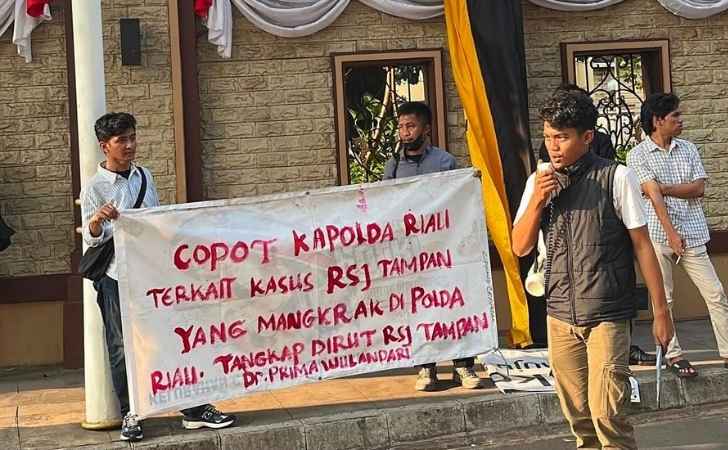 COPOT KAPOLDA RIAU
TERKAIT KASUS RSJ TAMPAN
YANG MANGKRAK DI POLDA
RIAU. TANGKAP DIRUT RSJ TAMPAN
Dr. PRIMA WULANDARI